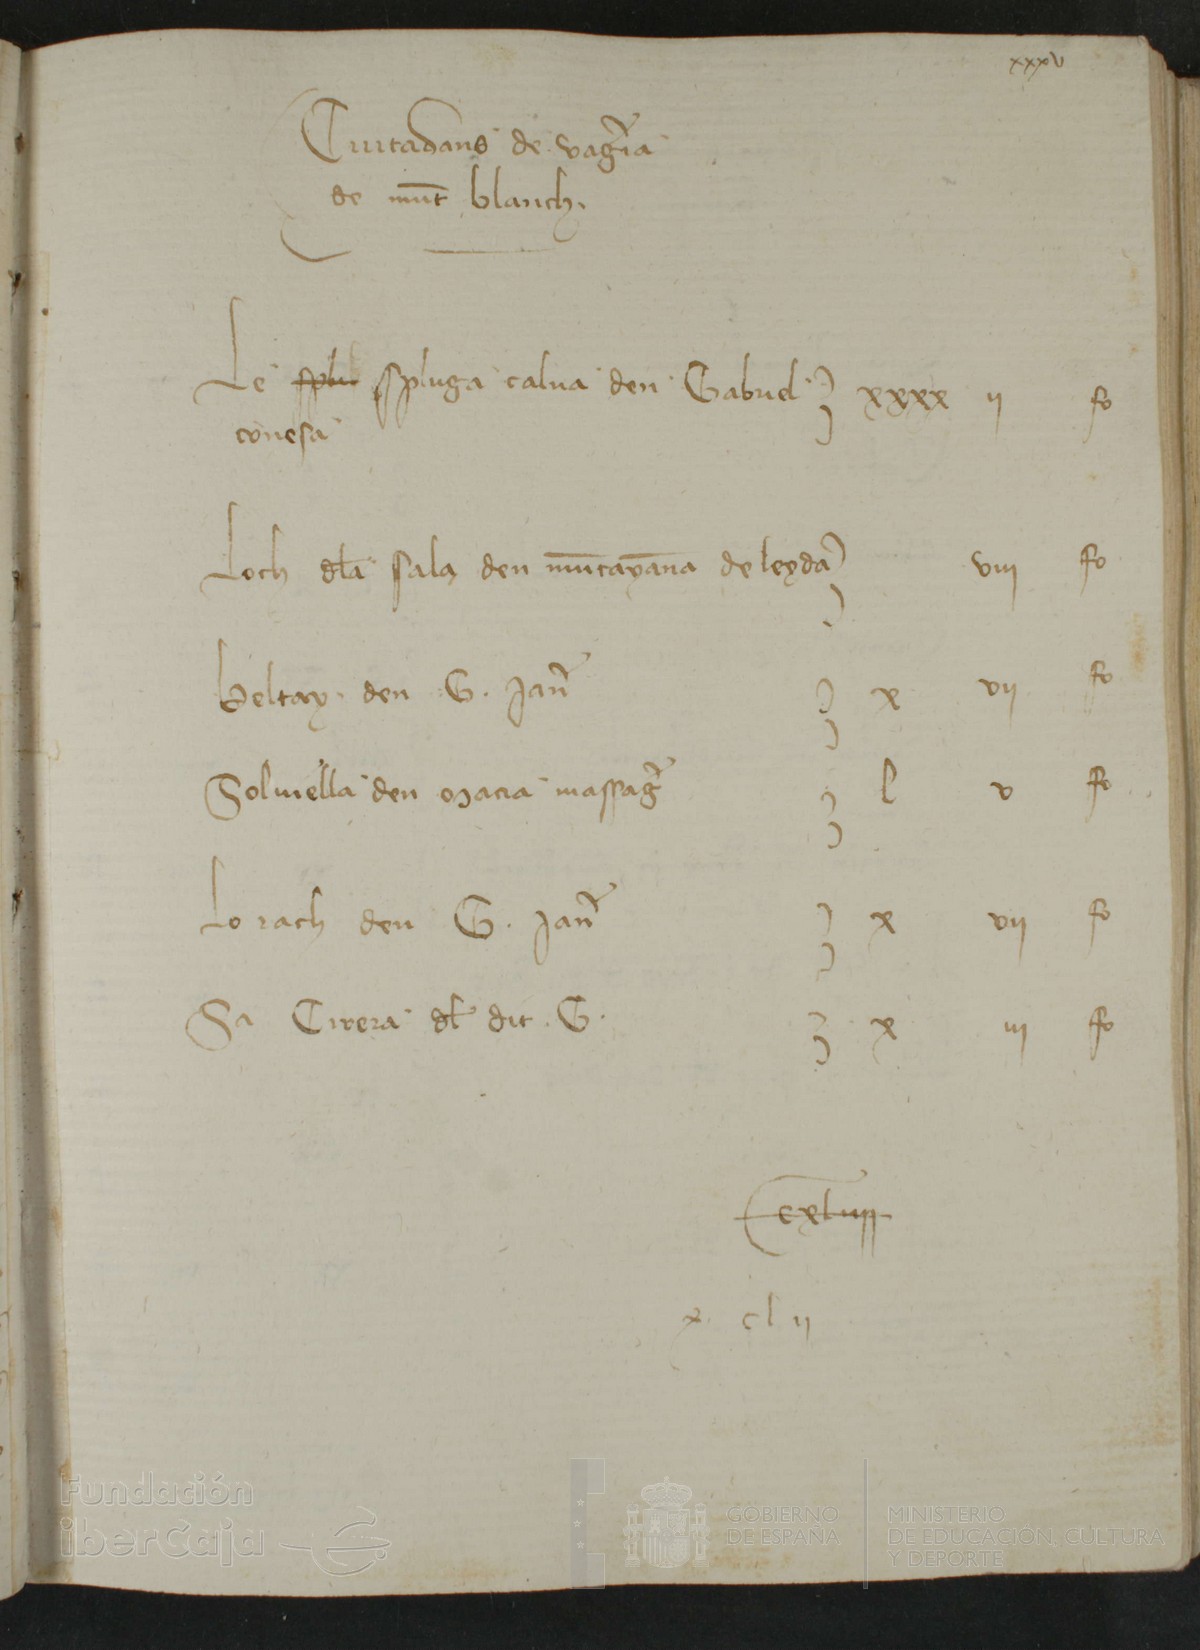 xxxv
Ciutadans de vag̃ia
de mũt blanch.
Le splu spluga calua den Gabriel xxxx ii fo
conesa
Loch dla sala den mũtayana de leyda viii fo
beltay. den G. Jañ x vii fo
Soluiella den macia massag̃ l v fo
Lorach den G. Jañ x vii fo
Sa Cirera dl dit. G. x iii fo
cxlvii
x. cl ii
Fundación
iberCaja
GOBIERNO
DE ESPAÑA
MINISTERIO
DE EDUCACIÓN, CULTURA
Y DEPORTE